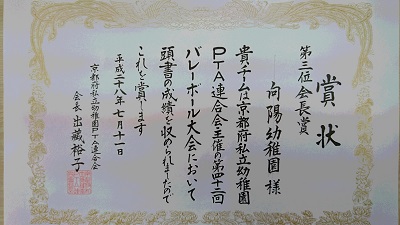 賞状
第三位会長賞
向陽幼稚園 様
貴チームは京都府私立幼稚園
PTA連合会主催の第四十二回
バレーボール大会において
頭書の成績を収められましたので
これを賞します
平成二十八年七月十一日
京都府私立幼稚園PTA連合会
会長 出藏裕子